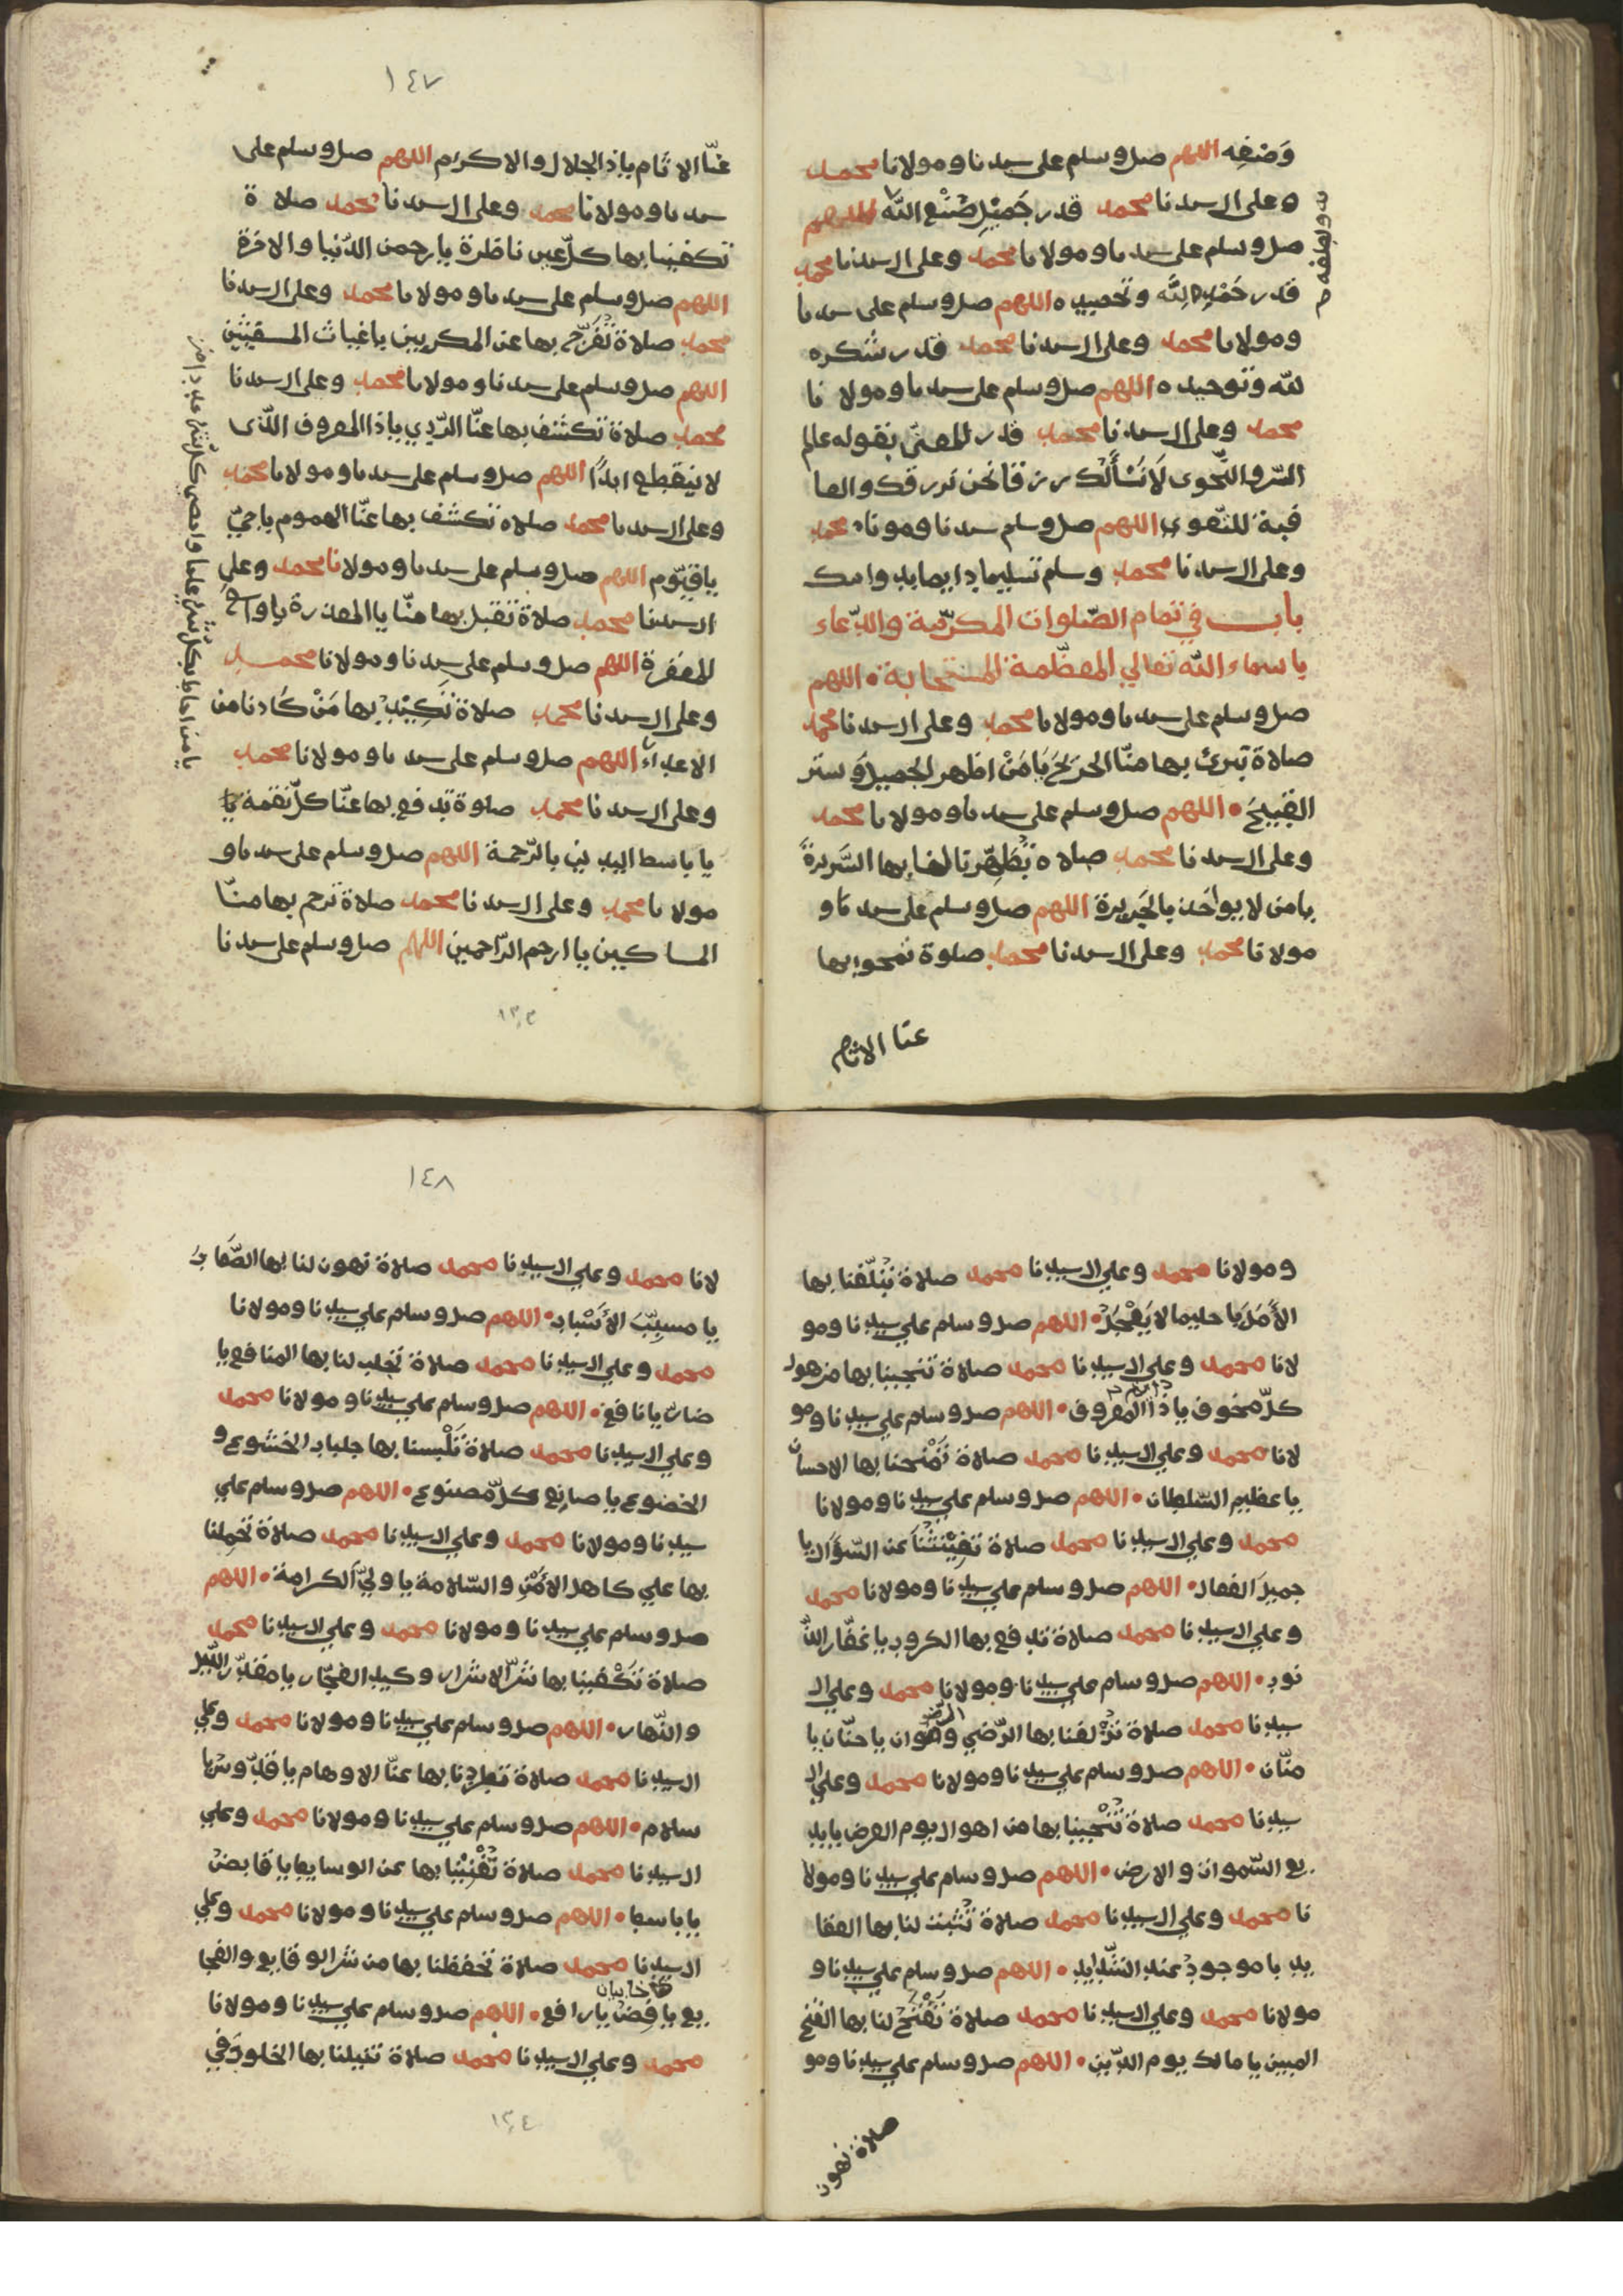 وَصْفِه اللهم صل وسلم على سيدنا ومولانا محمد
وعلى ال سيدنا محمد قدر جَمِيْلِ صُنْعِ اللّه اللهم
صل وسلم على سيدنا ومولانا محمد وعلى ال سيدنا محمد
قدر حَمْدِه لِلّه وتحميده اللهم صل وسلم على سيدنا
ومولانا محمد وعلى ال سيدنا محمد قدر شكره
لله وتوحيده اللهم صل وسلم على سيدنا ومولا نا
محمد وعلى ال سيدنا محمد قدر المعنّى بقوله عالم
السّر والنّجوى لَا نَسْأَلُك رزقا نحن نرزقك والعا
قبة للتقوى اللهم صل وسلم سيدنا ومونا محمد
وعلى ال سيدنا محمد وسلم تسليما دايما بدوامك
باب في تمام الصّلوات المكرّمة والدّعاء
باسماء اللّه تعالى المعظّمة المستجابة • اللهم
صل وسلم على سيدنا ومولانا محمد وعلى ال سيدنا محمد
صلاة تبرئ بها منّا الجَرِيحَ يَا مَنْ اظهر الجميل وَستر
القبيحَ • اللهم صل وسلم على سيدنا ومولانا محمد
وعلى ال سيدنا محمد صلاه تُطَهِّر لنا بها السَّرِيرةَ
يا من لا يواخذ بالجَرِيرة اللهم صل وسلم على سيدنا و
مولانا محمد وعلى ال سيدنا محمد صلوة تمحوا بها
عنا الاثام
١٤٧
عنّا الاثام ياذ الجلال والاكرام اللهم صل وسلم على
سيدنا ومولانا محمد وعلى ال سيدنا محمد صلاة
تكفينا بها كلّ عين ناظرة يا رحمن الدّنيا والاخرة
اللهم صل وسلم على سيدنا ومولانا محمد وعلى ال سيدنا
محمد صلاة تُفَرّج بها عن المكربين يا غياث المستغيثين
اللهم صل وسلم على سيدنا ومولانا محمد وعلى ال سيدنا
محمد صلاة تكشف بها عنّا الرّدي ياذا المعروف الذّى
لا ينقطع ابدًا اللهم صل وسلم على سيدنا ومولانا محمد
وعلى ال سيدنا محمد صلاه تكشف بها عنّا الهموم يا حيّ
يا قيّوم اللهم صل وسلم على سيدنا ومولانا محمد وعلى
ال سيدنا محمد صلاة تقبل بها منّا يا المعذرة يا واسع
المغفرة اللهم صل وسلم على سيدنا ومولانا محمد
وعلى ال سيدنا محمد صلاة تَكِيْدُ بها مَنْ كَادنا من
الاعداء اللهم صل وسلم على سيدنا ومولانا محمد
وعلى ال سيدنا محمد صلوة تدفع بها عنّا كلّ نقمة يا
يا باسط اليدين بالرّحمة اللهم صل وسلم على سيدنا و
مولانا محمد وعلى ال سيدنا محمد صلاة ترحم بها منّا
المساكين يا ارحم الرّاحمين اللهم صل وسلم على سيدنا
يا من احاط بكل شئ علما واحصى كل شئ عددا
١٣٠٣
ومولانا محمد وعلي ال سيدنا محمد صلاة تُبَلّغنا بها
الأَمَلَ يا حليما لا يَعْجَلُ • اللهم صل وسلم علي سيدنا ومو
لانا محمد وعلي ال سيدنا محمد صلاة تنجينا بها من هول
كلّ مخوف يا ذا المعروف • اللهم صل وسلم علي سيدنا ومو
لانا محمد وعلي ال سيدنا محمد صلاة تَمْنحنا بها الاحسان
يا عظيم السّلطان • اللهم صل وسلم علي سيدنا ومولانا
محمد وعلي ال سيدنا محمد صلاة تغنينا عن السّؤال يا
جميلَ الفعال • اللهم صل وسلم علي سيدنا ومولانا محمد
وعلي ال سيدنا محمد صلاة تدفع بها الكروب يا غفّار الذّ
نوب • اللهم صل وسلم علي سيدنا ومولانا محمد وعلي ال
سيدنا محمد صلاة تُزْلفنا بها الرّضي والرضوان يا حنّان يا
منّان • اللهم صل وسلم علي سيدنا ومولانا محمد وعلي ال
سيدنا محمد صلاة تُنْجينا بها من اهوال يوم العرض يا بد
يع السّموات والارض • اللهم صل وسلم علي سيدنا ومولا
نا محمد وعلي ال سيدنا محمد صلاة تُثبت لنا بها العقا
يد يا موجودُ عند الشّدايد • اللهم صل وسلم علي سيدنا و
مولانا محمد وعلي ال سيدنا محمد صلاة تَفْتَحُ لنا بها الفتح
المبين يا مالك يوم الدّين • اللهم صل وسلم علي سيدنا ومو
صلاة تهون
١٤٨
لانا محمد وعلي ال سيدنا محمد صلاة تهون لنا بها الصّعابَ
يا مسبّبَ الأَسْباب • اللهم صل وسلم علي سيدنا ومولانا
محمد وعلي ال سيدنا محمد صلاة تجلب لنا بها المنافع يا
ضارّ يا نافع • اللهم صل وسلم علي سيدنا ومولانا محمد
وعلي ال سيدنا محمد صلاة تَلْبسنا بها جلباب الخشوع و
الخضوع يا صانِع كلّ مصنوع • اللهم صل وسلم علي
سيدنا ومولانا محمد وعلي ال سيدنا محمد صلاة تحملنا
بها علي كاهل الأَمْنِ والسّلامة يا وليّ الكرامة • اللهم
صل وسلم علي سيدنا ومولانا محمد وعلي ال سيدنا محمد
صلاة تَكْفينا بها شرّ الاشرار وكيد الفجّار يا مقلّب الليل
والنّهار • اللهم صل وسلم علي سيدنا ومولانا محمد وعلي
ال سيدنا محمد صلاة تطرد نا بها عنّا الاوهام يا قدّوس يا
سلام • اللهم صل وسلم علي سيدنا ومولانا محمد وعلي
ال سيدنا محمد صلاة تُغْنِيْنا بها عن الوسايط يا قابض
يا باسط • اللهم صل وسلم علي سيدنا ومولانا محمد وعلي
ال سيدنا محمد صلاة تحفظنا بها من شر الوقايع والفجا
يع يا خافض يا رافع • اللهم صل وسلم علي سيدنا ومولانا
محمد وعلي ال سيدنا محمد صلاة تنيلنا بها الخلود في
١٣٠٤